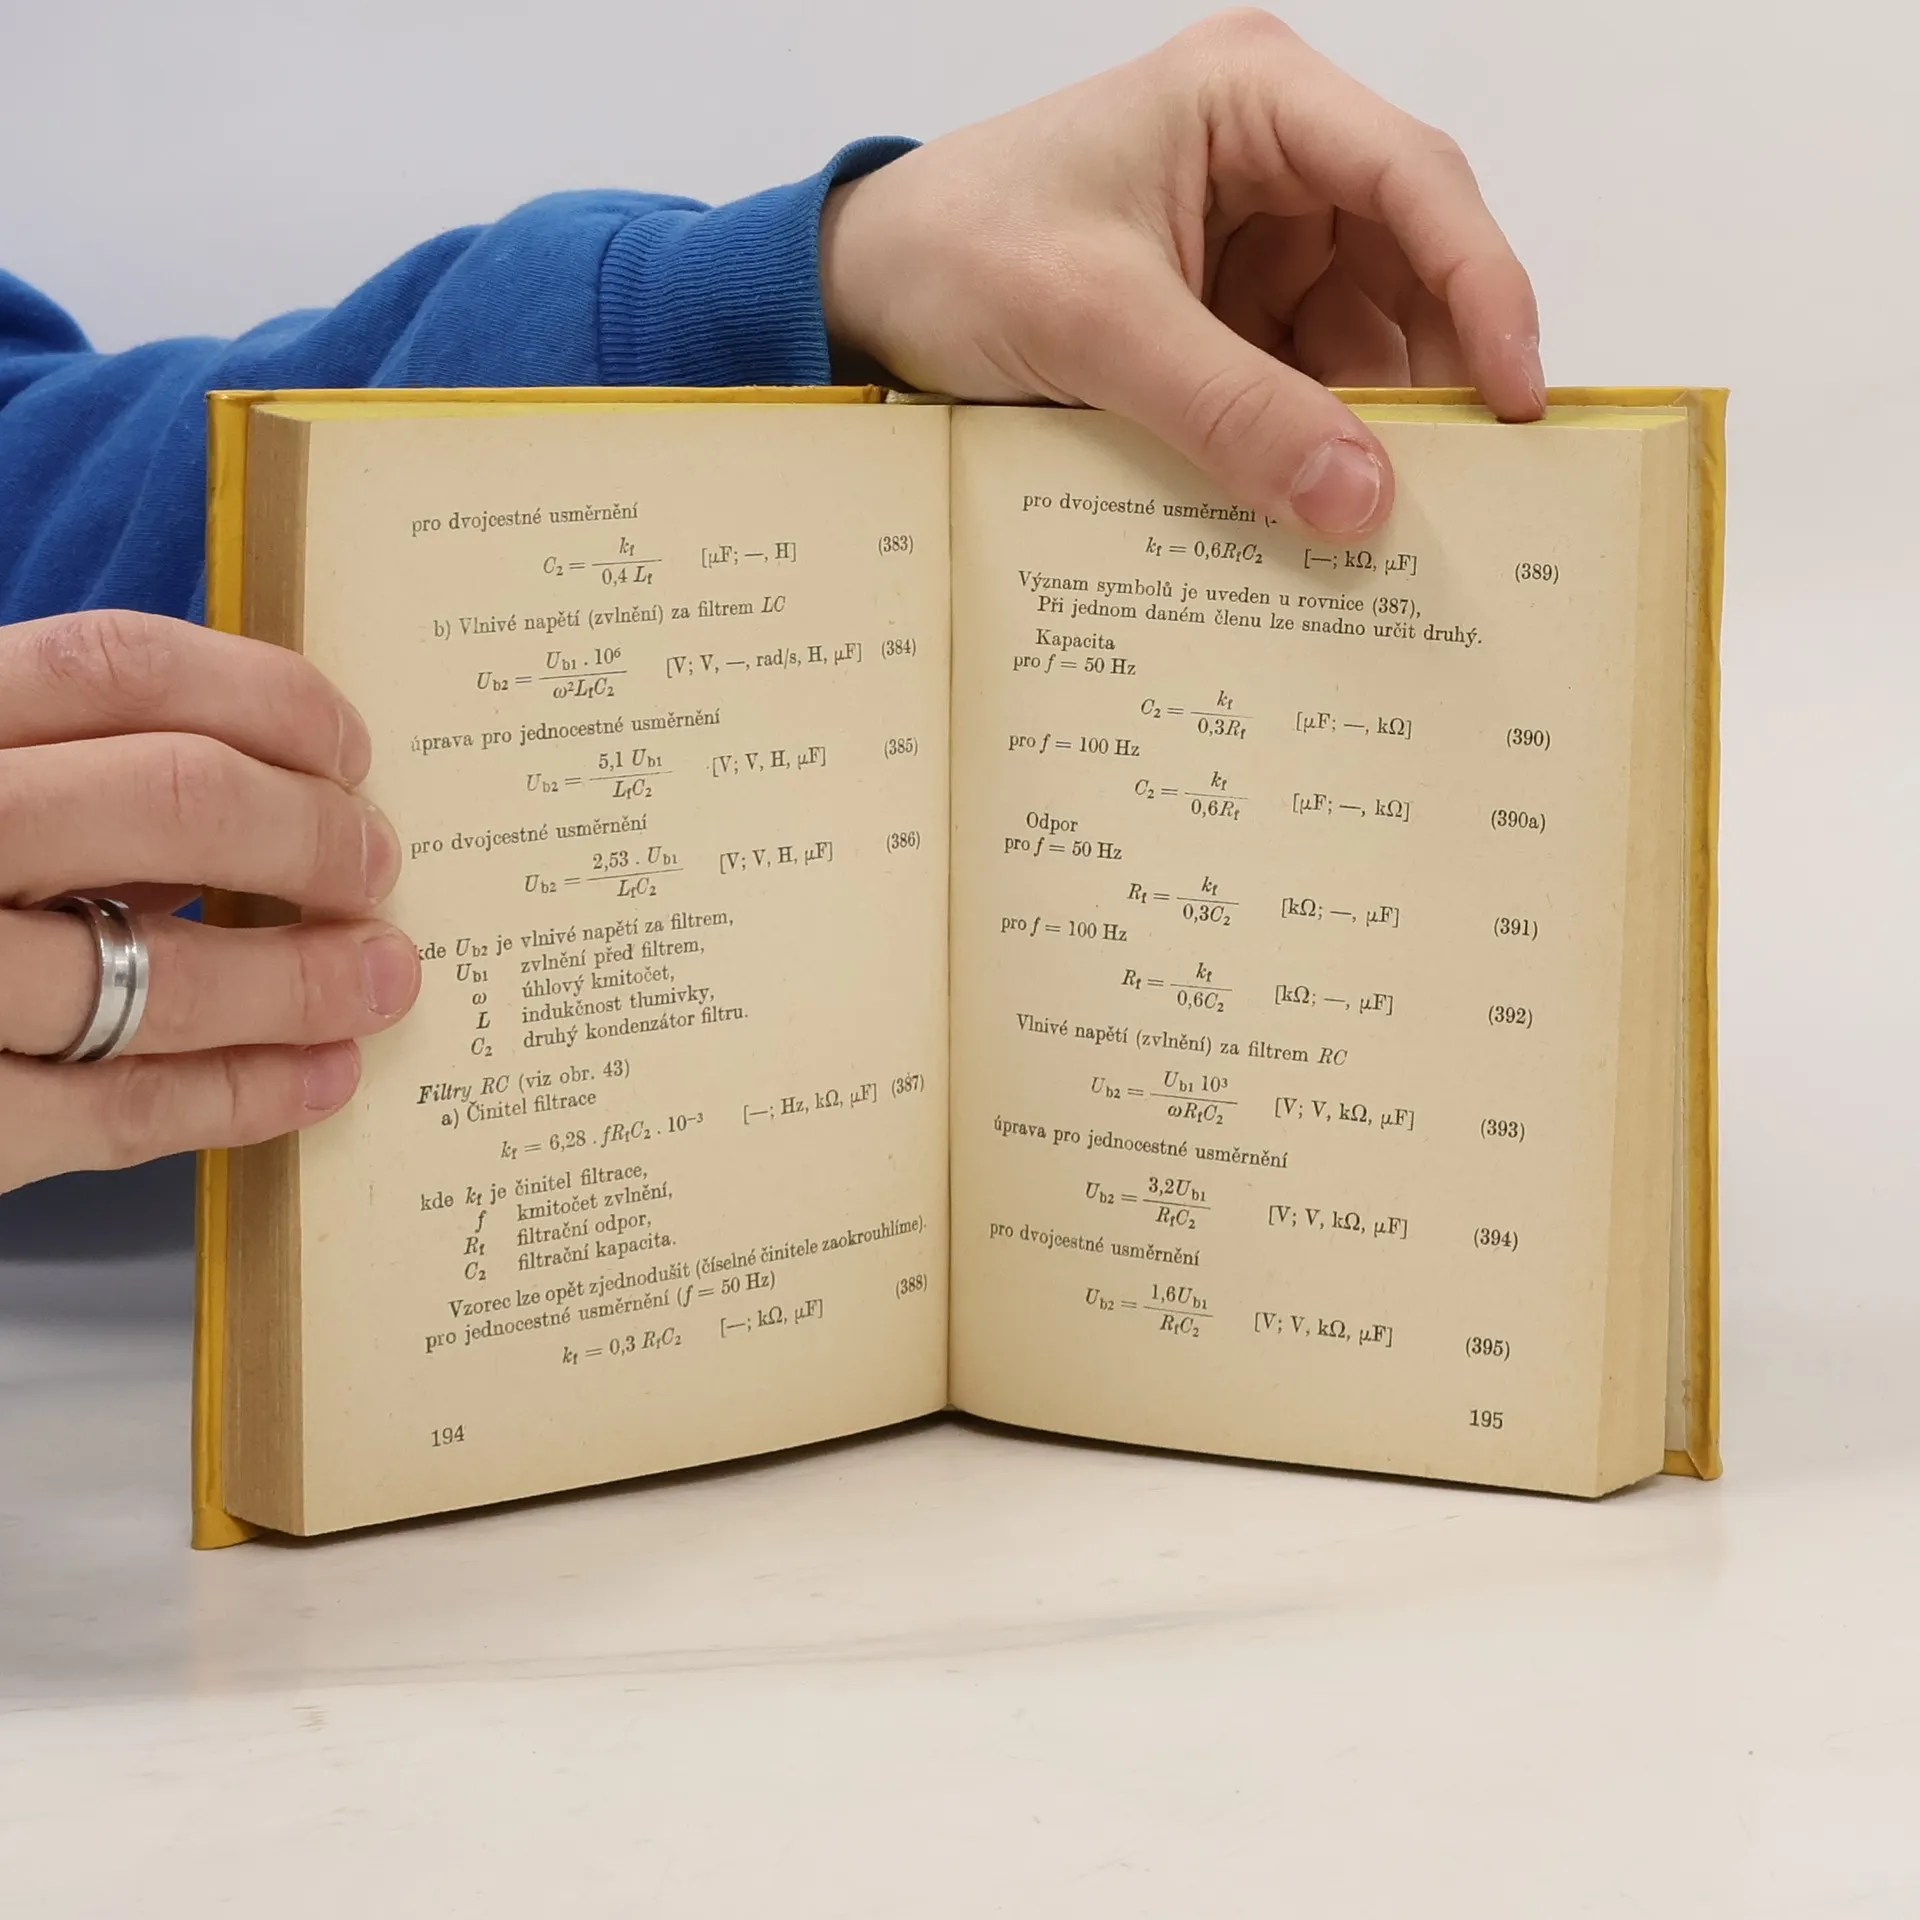 pro dvojcestné usměrnění
C₂ = k_f / 0,4 L_f [μF; —, H] (383)
b) Vlnivé napětí (zvlnění) za filtrem LC
U_b2 = U_b1 . 10⁶ / ω²L_fC₂ [V; V, —, rad/s, H, μF] (384)
úprava pro jednocestné usměrnění
U_b2 = 5,1 U_b1 / L_fC₂ [V; V, H, μF] (385)
pro dvojcestné usměrnění
U_b2 = 2,53 . U_b1 / L_fC₂ [V; V, H, μF] (386)
kde U_b2 je vlnivé napětí za filtrem,
U_b1 zvlnění před filtrem,
ω úhlový kmitočet,
L indukčnost tlumivky,
C₂ druhý kondenzátor filtru.
Filtry RC (viz obr. 43)
a) Činitel filtrace
k_f = 6,28 . fR_fC₂ . 10⁻³ [—; Hz, kΩ, μF] (387)
kde k_f je činitel filtrace,
f kmitočet zvlnění,
R_f filtrační odpor,
C₂ filtrační kapacita.
Vzorec lze opět zjednodušit (číselné činitele zaokrouhlíme).
pro jednocestné usměrnění (f = 50 Hz)
k_f = 0,3 R_fC₂ [—; kΩ, μF] (388)
194
pro dvojcestné usměrnění
k_f = 0,6R_fC₂ [—; kΩ, μF] (389)
Význam symbolů je uveden u rovnice (387),
Při jednom daném členu lze snadno určit druhý.
Kapacita
pro f = 50 Hz
C₂ = k_f / 0,3R_f [μF; —, kΩ] (390)
pro f = 100 Hz
C₂ = k_f / 0,6R_f [μF; —, kΩ] (390a)
Odpor
pro f = 50 Hz
R_f = k_f / 0,3C₂ [kΩ; —, μF] (391)
pro f = 100 Hz
R_f = k_f / 0,6C₂ [kΩ; —, μF] (392)
Vlnivé napětí (zvlnění) za filtrem RC
U_b2 = U_b1 10³ / ωR_fC₂ [V; V, kΩ, μF] (393)
úprava pro jednocestné usměrnění
U_b2 = 3,2U_b1 / R_fC₂ [V; V, kΩ, μF] (394)
pro dvojcestné usměrnění
U_b2 = 1,6U_b1 / R_fC₂ [V; V, kΩ, μF] (395)
195